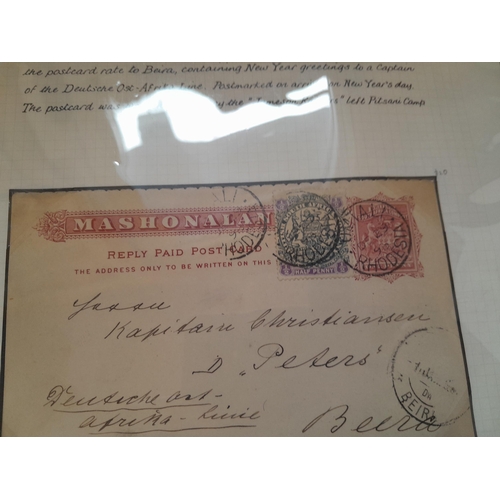 the postcard rate to Beira, containing New Year greetings to a Captain
of the Deutsche Ost-Afrika Line. Postmarked on arrival on New Year's day.
The postcard was by the "Jameson Raiders" left Pitsani Camp
MASHONALAN
REPLY PAID POST CARD
THE ADDRESS ONLY TO BE WRITTEN ON THIS
HALF PENNY
UMTALI
RHODESIA
Herrn
Kapitain Christiansen
D "Peters"
Deutsche Ost-
Afrika-Linie
Beira
BEIRA